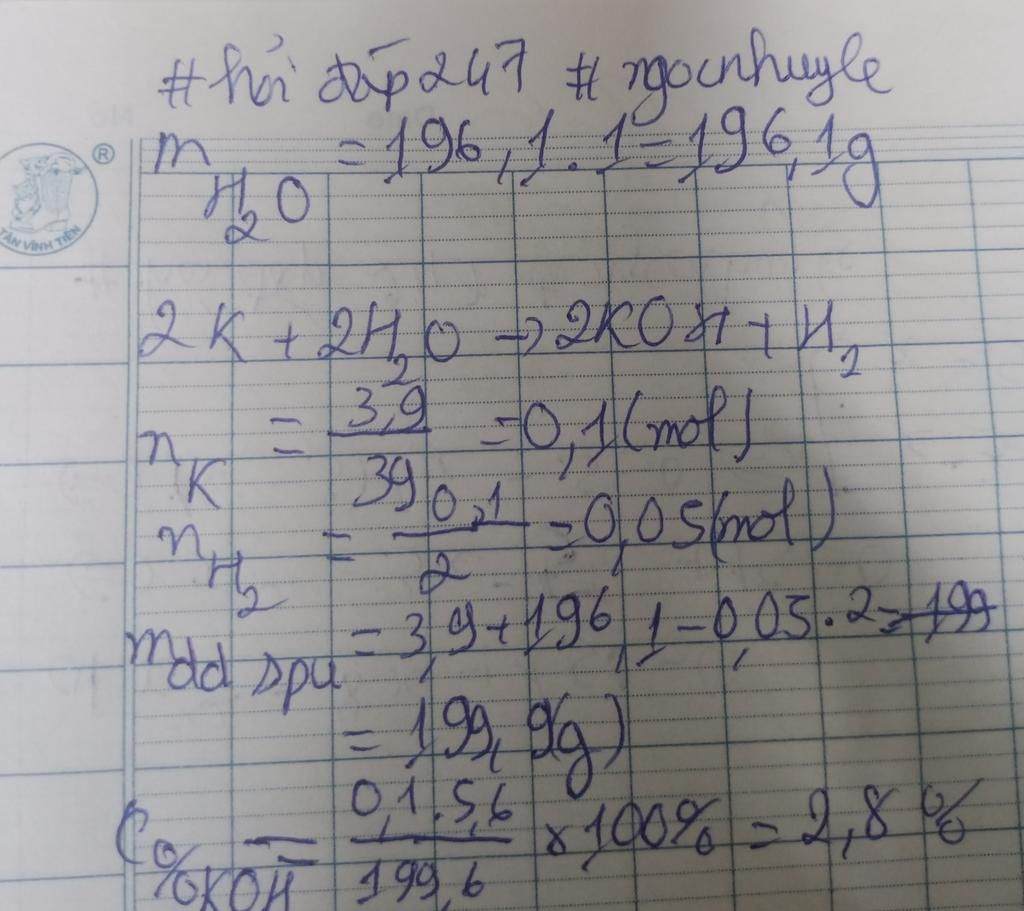 #hỏi đáp247 #ngocnhuyle
m H₂O = 196,1.1=196,1g
® TÂN VĨNH TIẾN
2K + 2H₂O → 2KOH + H₂
n K = 3,9/39 = 0,1(mol)
n H₂ = 0,1/2 = 0,05(mol)
m dd spu = 3,9+196,1-0,05.2= ~~199~~
= 199,9(g)
C% KOH = 0,1.5,6/199,6 x100% = 2,8%